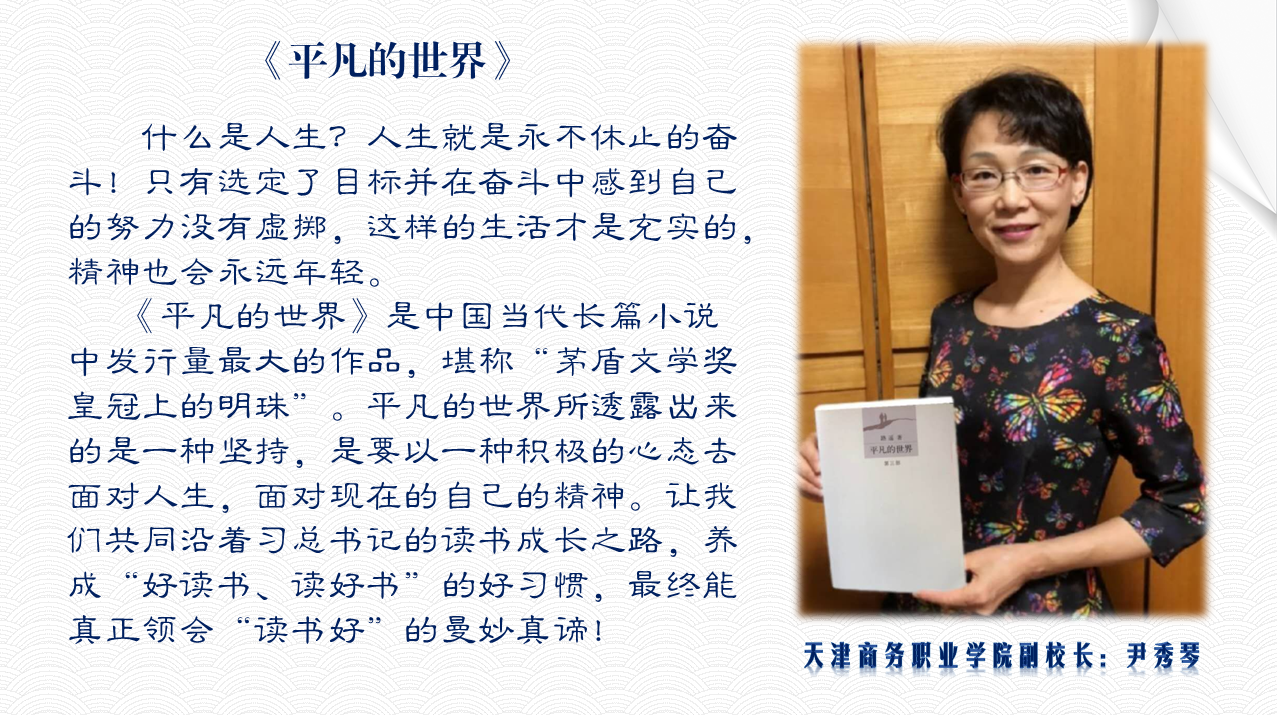 《平凡的世界》
什么是人生？人生就是永不休止的奋
斗！只有选定了目标并在奋斗中感到自己
的努力没有虚掷，这样的生活才是充实的，
精神也会永远年轻。
《平凡的世界》是中国当代长篇小说
中发行量最大的作品，堪称“茅盾文学奖
皇冠上的明珠”。平凡的世界所透露出来
的是一种坚持，是要以一种积极的心态去
面对人生，面对现在的自己的精神。让我
们共同沿着习总书记的读书成长之路，养
成“好读书、读好书”的好习惯，最终能
真正领会“读书好”的曼妙真谛！
路遥 著
平凡的世界
第三部
天津商务职业学院副校长：尹秀琴